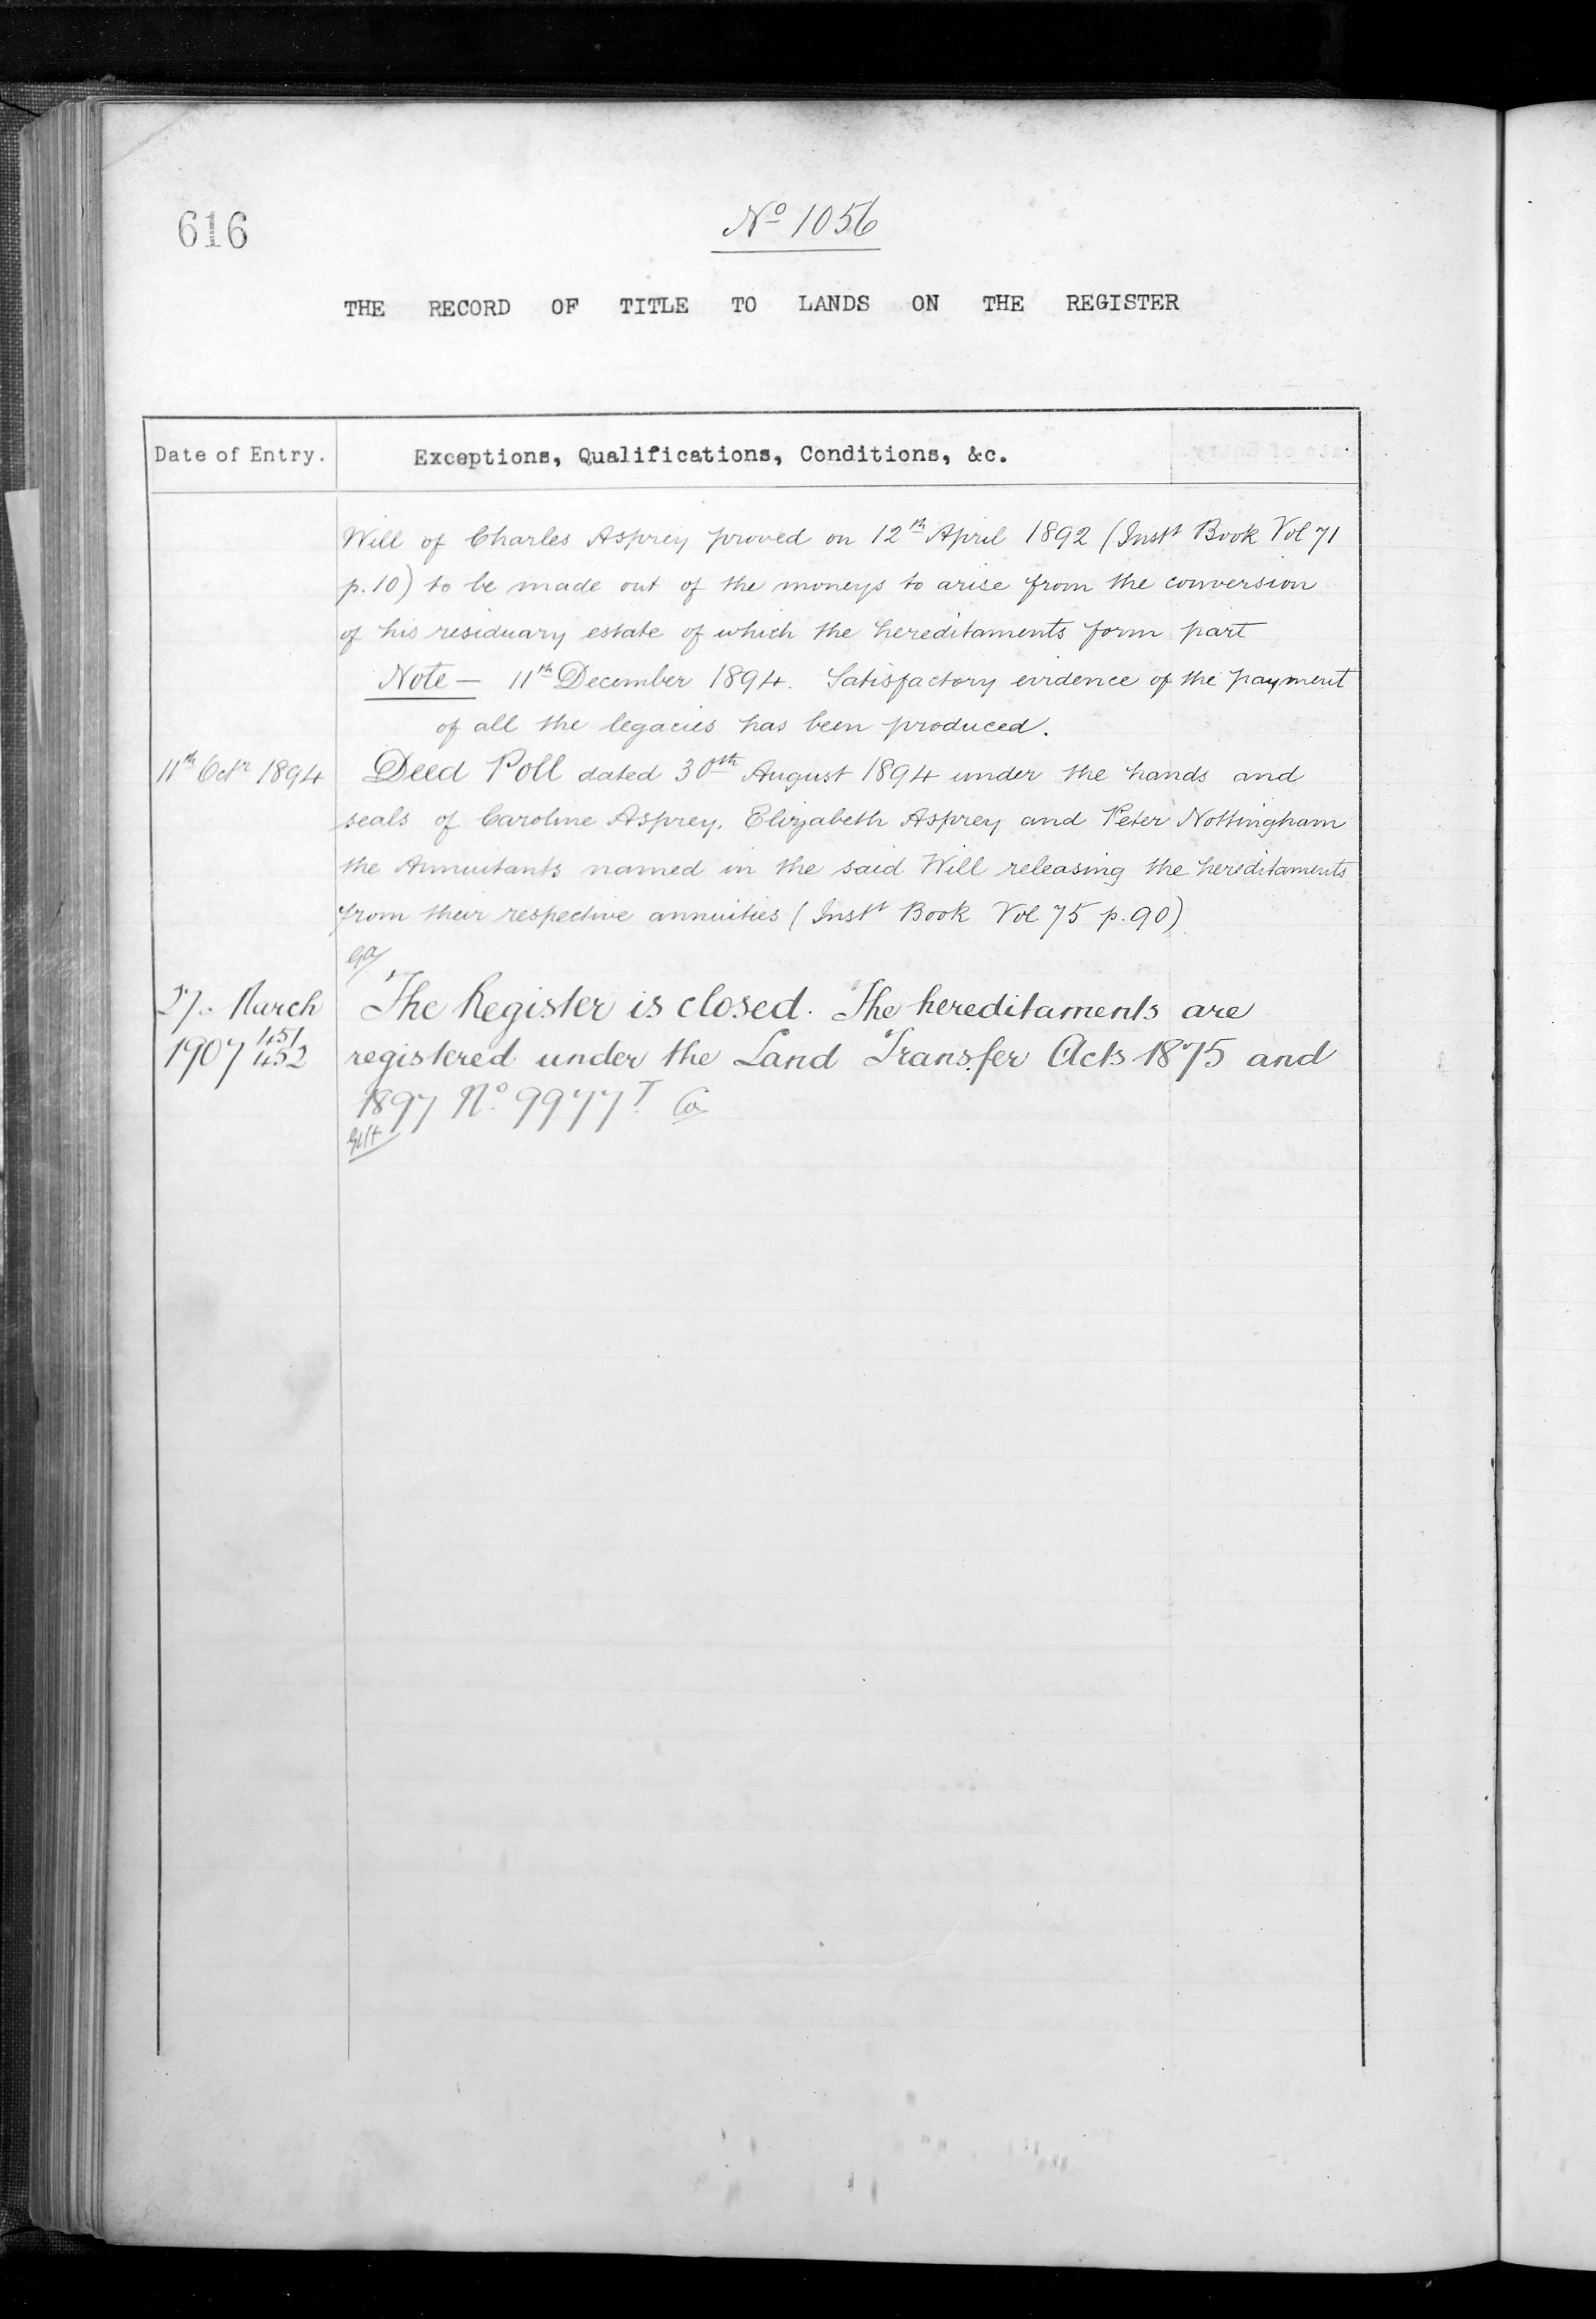 616
No 1056
THE RECORD OF TITLE TO LANDS ON THE REGISTER
Date of Entry.
Exceptions, Qualifications, Conditions, &c.
Will of Charles Asprey proved on 12th April 1892 (Instt Book Vol 71
p. 10) to be made out of the moneys to arise from the conversion
of his residuary estate of which the hereditaments form part
Note — 11th December 1894. Satisfactory evidence of the payment
of all the legacies has been produced.
11th Octr 1894 Deed Poll dated 30th August 1894 under the hands and
seals of Caroline Asprey, Elizabeth Asprey and Peter Nottingham
the Annuitants named in the said Will releasing the hereditaments
from their respective annuities (Instt Book Vol 75 p. 90)
27. March The Register is closed. The hereditaments are
451
1907 452 registered under the Land Transfer Acts 1875 and
1897 No. 9977T